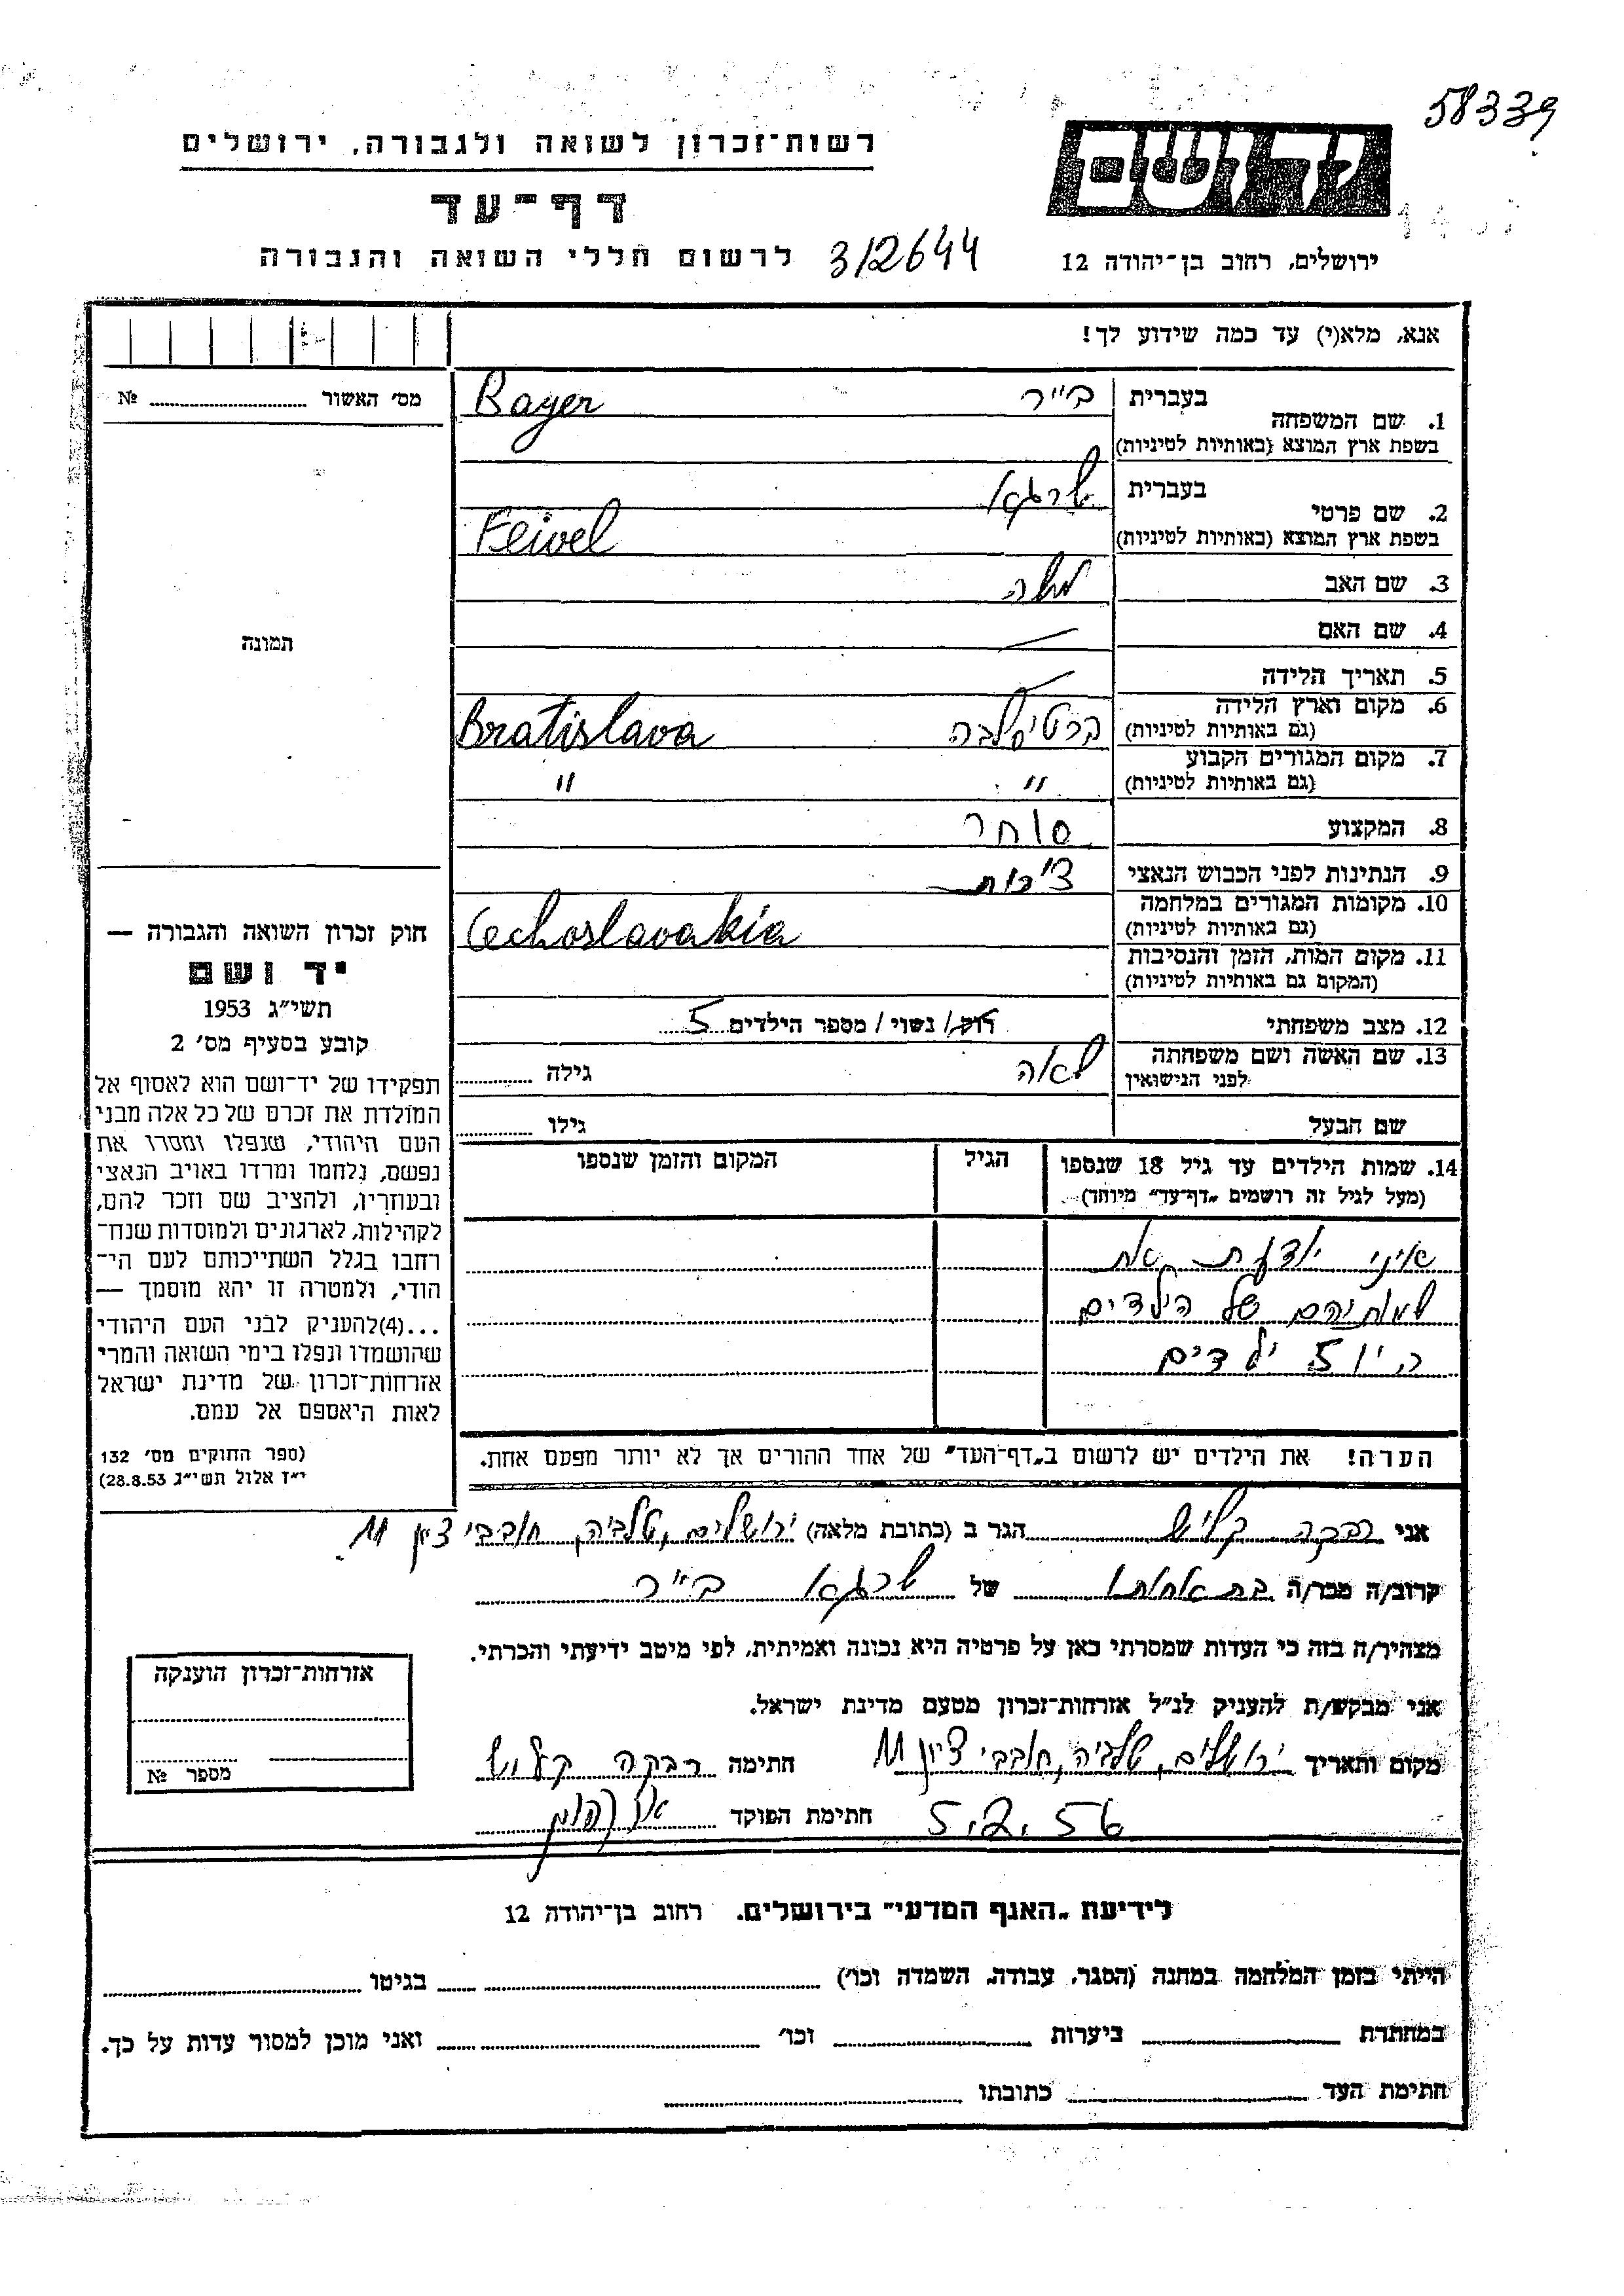 58339
רשות־זכרון לשואה ולגבורה, ירושלים
יד ושם
דף־עד
ירושלים, רחוב בן־יהודה 12
3/2644
לרשום חללי השואה והגבורה
אנא, מלא(י) עד כמה שידוע לך!
מס׳ האשור № 
1. שם המשפחה
בעברית
בייר
Bayer
בשפת ארץ המוצא (באותיות לטיניות)
בעברית
שרגא
2. שם פרטי
בשפת ארץ המוצא (באותיות לטיניות)
Feivel
3. שם האב
משה
4. שם האם
5. תאריך הלידה
6. מקום וארץ הלידה
(גם באותיות לטיניות)
ברטיסלבה
Bratislava
7. מקום המגורים הקבוע
(גם באותיות לטיניות)
" "
8. המקצוע
סוחר
9. הנתינות לפני הכבוש הנאצי
צ'כית
10. מקומות המגורים במלחמה
(גם באותיות לטיניות)
Cechoslavakia
11. מקום המות, הזמן והנסיבות
(המקום גם באותיות לטיניות)
12. מצב משפחתי
רוק/ נשוי / מספר הילדים 5
13. שם האשה ושם משפחתה
לפני הנישואין
לאה
גילה
שם הבעל
גילו
תמונה
חוק זכרון השואה והגבורה —
יד ושם
תשי״ג 1953
קובע בסעיף מס׳ 2
תפקידו של יד־ושם הוא לאסוף אל
המולדת את זכרם של כל אלה מבני
העם היהודי, שנפלו ומסרו את
נפשם, נלחמו ומרדו באויב הנאצי
ובעוזריו, ולהציב שם וזכר להם,
לקהילות, לארגונים ולמוסדות שנח־
רחבו בגלל השתייכותם לעם הי־
הודי, ולמטרה זו יהא מוסמך —
...(4)להעניק לבני העם היהודי
שהושמדו ונפלו בימי השואה והמרי
אזרחות־זכרון של מדינת ישראל
לאות היאספם אל עמם.
(ספר החוקים מס׳ 132
י״ז אלול תשי״ג 28.8.53)
14. שמות הילדים עד גיל 18 שנספו
(מעל לגיל זה רושמים „דף־עד״ מיוחד)
הגיל
המקום והזמן שנספו
אינני יודעת את
שמותיהם של הילדים
היו 5 ילדים
הערה! את הילדים יש לרשום ב„דף־העד״ של אחד ההורים אך לא יותר מפעם אחת.
אני רבקה קליש הגר ב (כתובת מלאה) ירושלים, טלביה, חובבי ציון 11
קרוב/ה מכר/ה בת אחותו של שרגא בייר
מצהיר/ה בזה כי העדות שמסרתי כאן על פרטיה היא נכונה ואמיתית, לפי מיטב ידיעתי והכרתי.
אני מבקש/ת להעניק לנ״ל אזרחות־זכרון מטעם מדינת ישראל.
מקום ותאריך ירושלים, טלביה, חובבי ציון 11 חתימה רבקה קליש
5.2.56 חתימת הפוקד
אזרחות־זכרון הוענקה
מספר №
לידיעת „האגף המדעי״ בירושלים. רחוב בן־יהודה 12
הייתי בזמן המלחמה במחנה (הסגר, עבודה, השמדה וכו׳) בגיטו
במחתרת ביערות וכו׳ ואני מוכן למסור עדות על כך.
חתימת העד כתובתו